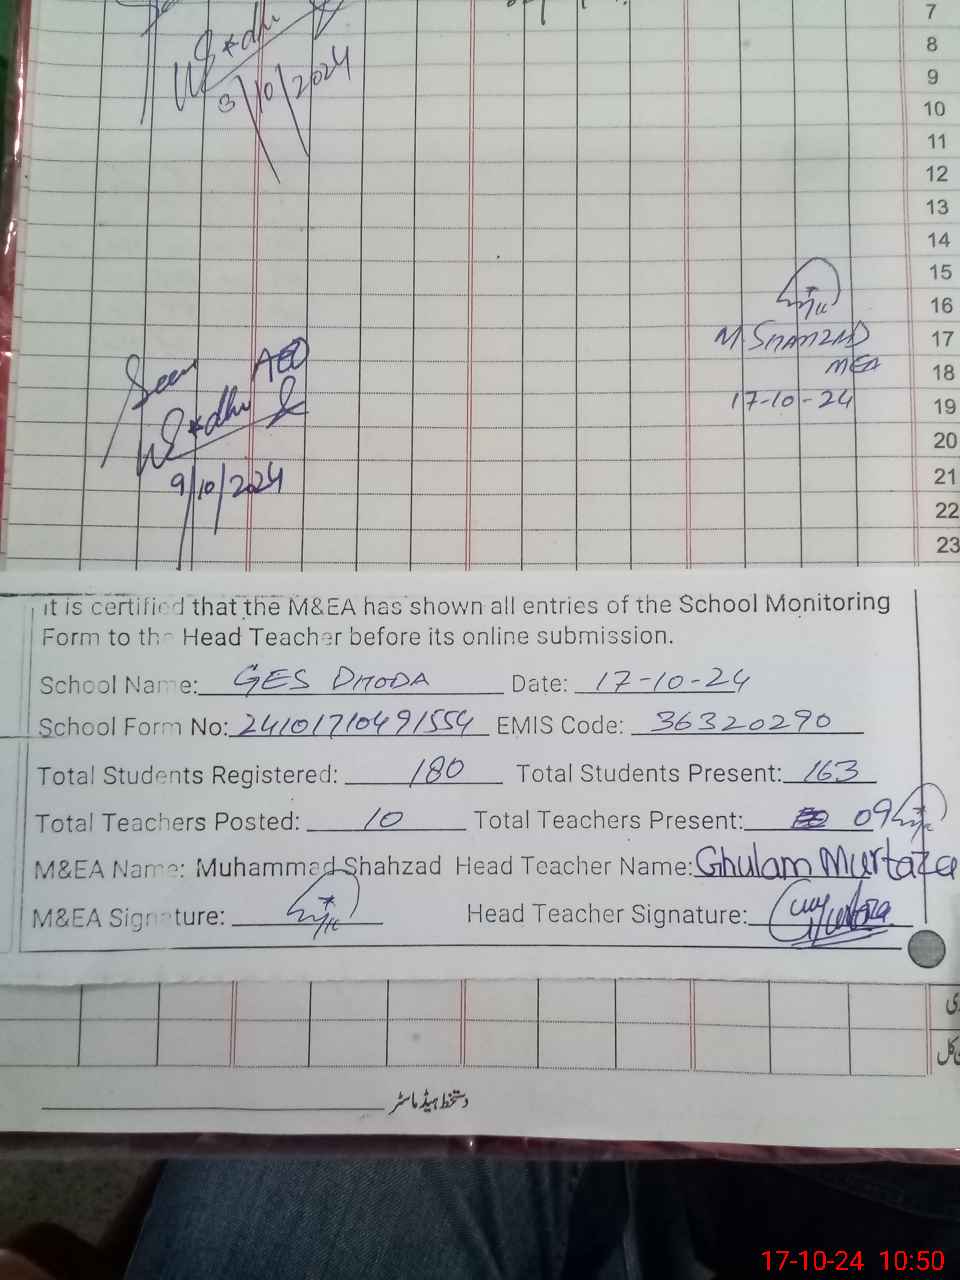 3/10/2024
7
8
9
10
11
12
13
14
15
16
17
18
19
20
21
22
23
M. SHAHZAD
MEA
17-10-24
Seen AEO
9/10/2024
it is certified that the M&EA has shown all entries of the School Monitoring
Form to the Head Teacher before its online submission.
School Name: GES DHODA Date: 17-10-24
School Form No: 24101710491554 EMIS Code: 36320290
Total Students Registered: 180 Total Students Present: 163
Total Teachers Posted: 10 Total Teachers Present: 09
M&EA Name: Muhammad Shahzad Head Teacher Name: Ghulam Murtaza
M&EA Signature: Head Teacher Signature:
دستخط ہیڈ ماسٹر
17-10-24 10:50